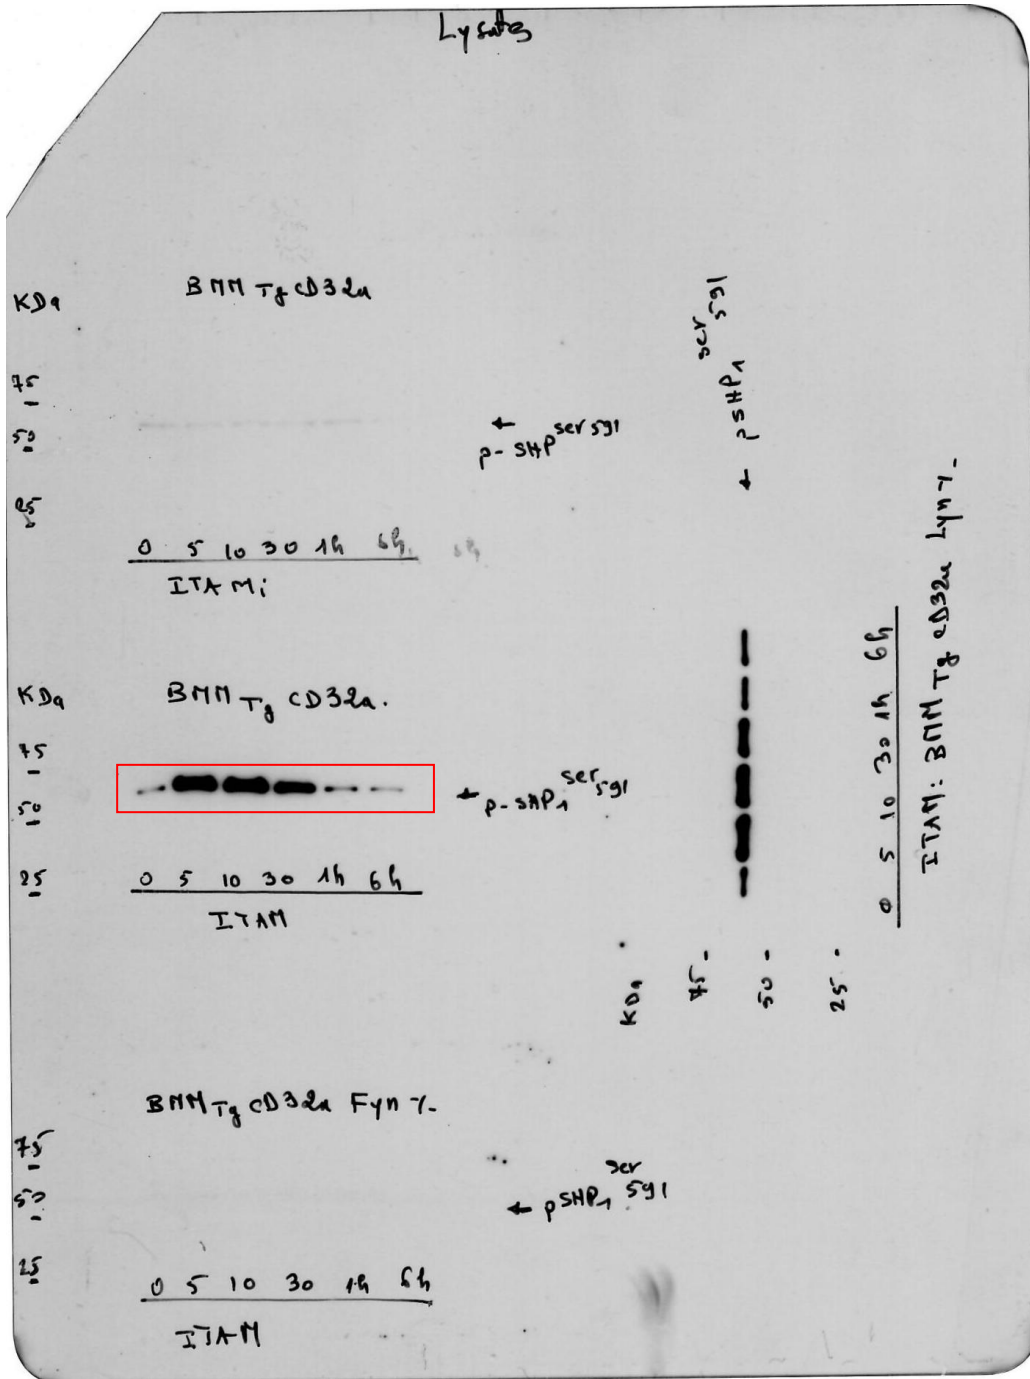 Lysates
BMM Tg CD32a
KDa
75
50
25
p-SHP ser 591
0 5 10 30 1h 6h
ITAMi
BMM Tg CD32a.
KDa
75
50
25
p-SHP1 ser 591
0 5 10 30 1h 6h
ITAM
BMM Tg CD32a Fyn -/-
75
50
25
pSHP1 ser 591
0 5 10 30 1h 6h
ITAM
pSHP1 ser 591
0 5 10 30 1h 6h
ITAM: BMM Tg CD32a Lyn -/-
KDa
75 -
50 -
25 -